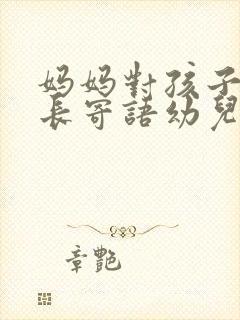 妈妈對孩子
長寄語幼兒
章艷